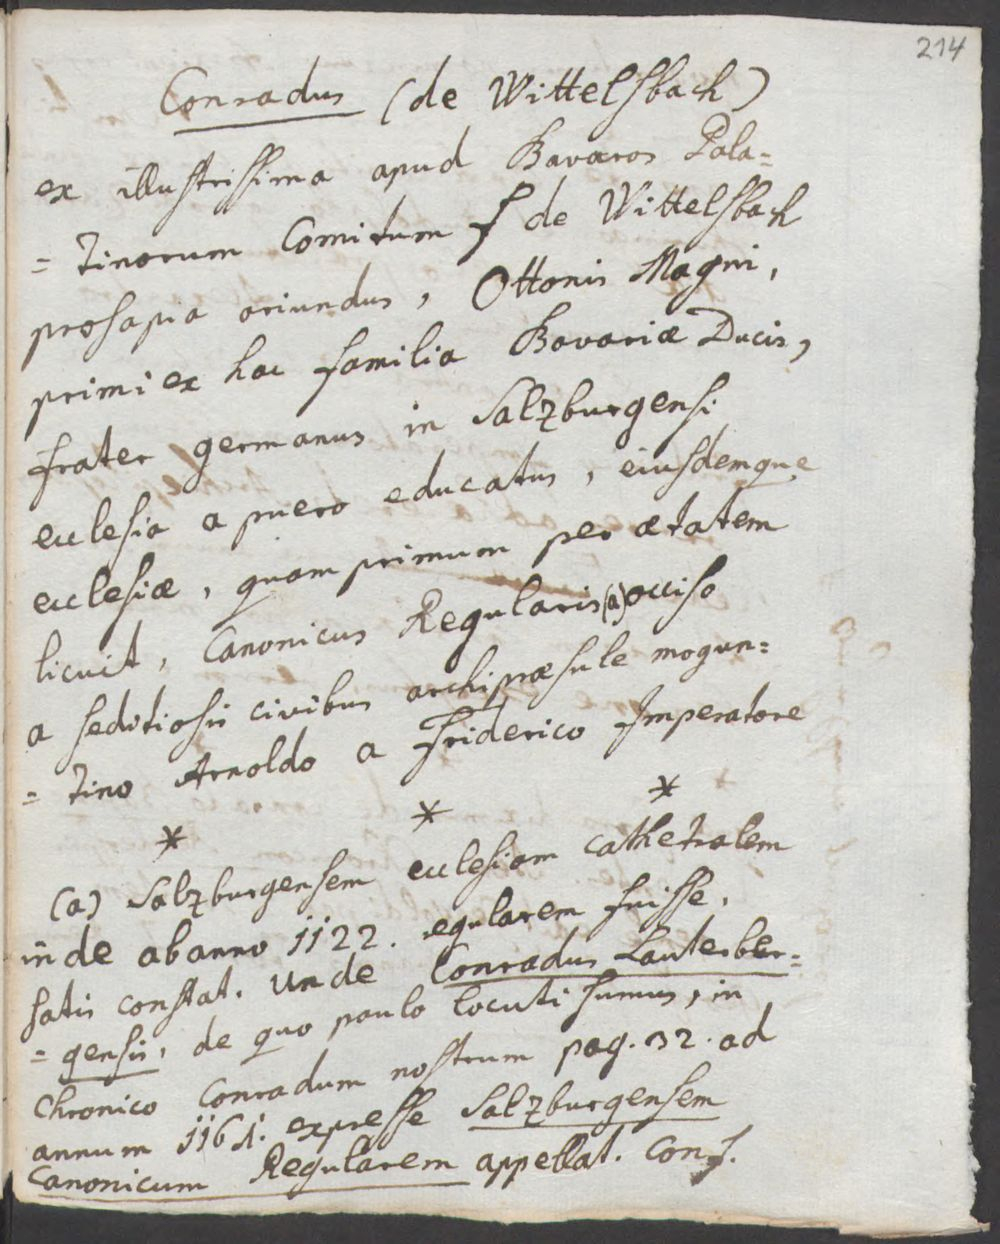 214
Conradus (de Wittelsbach)
ex illustrissima apud Bavaros Pala=
= tinorum Comitum de Wittelsbach
prosapia oriundus, Ottonis Magni,
primi ex hac familia Bavariæ Ducis,
frater germanus in Salzburgensi
ecclesia a puero educatus, eiusdemque
ecclesiæ, quam primum per ætatem
licuit, Canonicus Regularis (a) occiso
a seditiosis civibus archipræsule mogun=
= tino Arnoldo a Friderico Imperatore
* * *
(a) Salzburgensem ecclesiam cathetralem
inde ab anno 1122. regularem fuisse,
satis constat. Unde Conradus Lauterber=
= gensis, de quo paulo locuti sumus, in
Chronico Conradum nostrum pag. 32. ad
annum 1161. expresse Salzburgensem
Canonicum Regularem appellat. Conf.